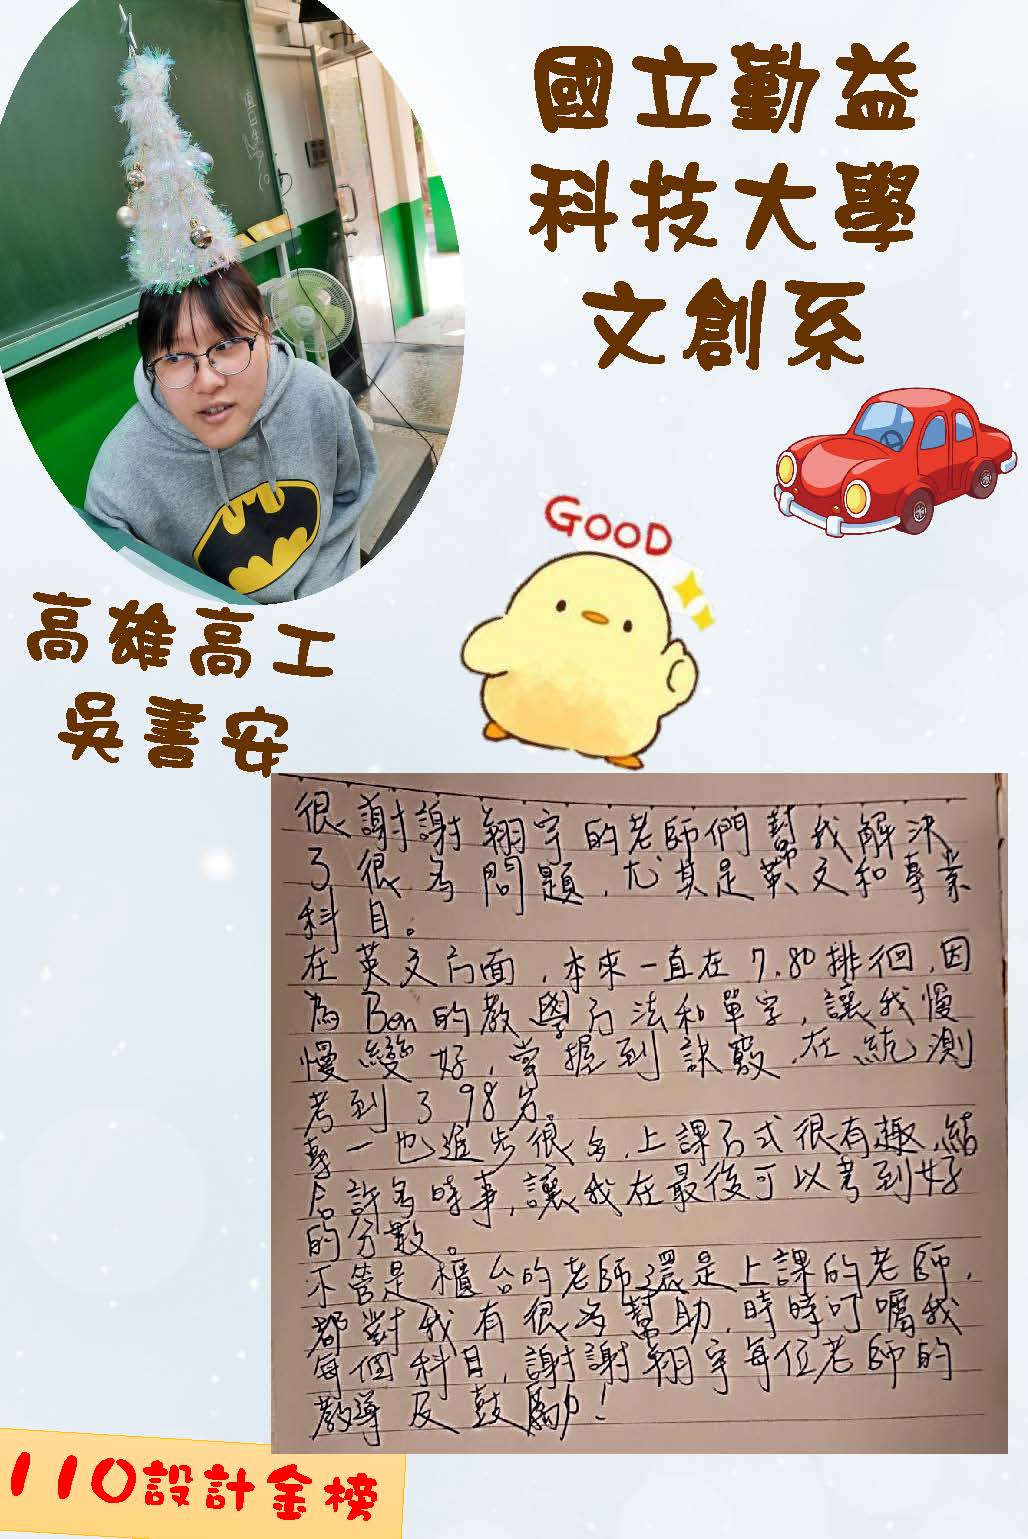 國立勤益
科技大學
文創系
GOOD
高雄高工
吳書安
很謝謝翔宇的老師們幫我解決
了很多問題,尤其是英文和專業
科目。
在英文方面,本來一直在7.80排徊,因
為Ben的教學方法和單字,讓我慢
慢變好,掌握到訣竅,在統測
考到了98分,
專一也進步很多,上課方式很有趣,結
合許多時事,讓我在最後可以考到好
的分數。
不管是櫃台的老師還是上課的老師,
都對我有很多幫助,時時叮嚀我
每個科目,謝謝翔宇每位老師的
教導及鼓勵!
110設計金榜